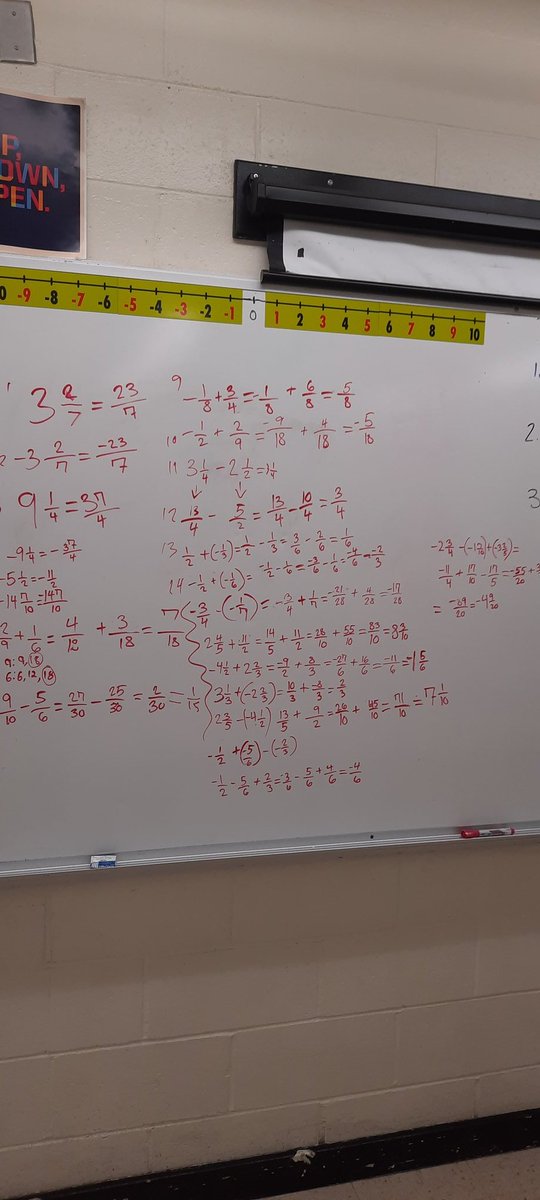 P,
OWN,
PEN.
0 -9 -8 -7 -6 -5 -4 -3 -2 -1 0 1 2 3 4 5 6 7 8 9 10
3 2/7 = 23/7
-3 2/7 = -23/7
9 1/4 = 37/4
-9 1/4 = -37/4
-5 1/2 = -11/2
-14 7/10 = 147/10
2/9 + 1/6 = 4/12 + 3/18 = 7/18
9: 9, 18
6: 6, 12, 18
9/10 - 5/6 = 27/30 - 25/30 = 2/30 = 1/15
9 -1/8 + 3/4 = -1/8 + 6/8 = 5/8
10 -1/2 + 2/9 = -9/18 + 4/18 = -5/18
11 3 1/4 - 2 1/2 =
12 13/4 - 5/2 = 13/4 - 10/4 = 3/4
13 1/2 + (-1/3) = 1/2 - 1/3 = 3/6 - 2/6 = 1/6
14 -1/2 + (-1/6) = -1/2 - 1/6 = -3/6 - 1/6 = -4/6 = -2/3
-3/4 - (-1/7) = -3/4 + 1/7 = -21/28 + 4/28 = -17/28
2 4/5 + 11/2 = 14/5 + 11/2 = 28/10 + 55/10 = 83/10 = 8 3/10
-4 1/2 + 2 2/3 = -9/2 + 8/3 = -27/6 + 16/6 = -11/6 = -1 5/6
3 1/3 + (-2 2/3) = 10/3 + -8/3 = 2/3
2 3/5 - (-4 1/2) 13/5 + 9/2 = 26/10 + 45/10 = 71/10 = 7 1/10
-1/2 + (-5/6) - (-2/3)
-1/2 - 5/6 + 2/3 = -3/6 - 5/6 + 4/6 = -4/6
-2 3/4 - (-1 7/10) + (-3 2/5) =
-11/4 + 17/10 - 17/5 = -55/20 + 3
= -89/20 = -4 9/20
1.
2.
3